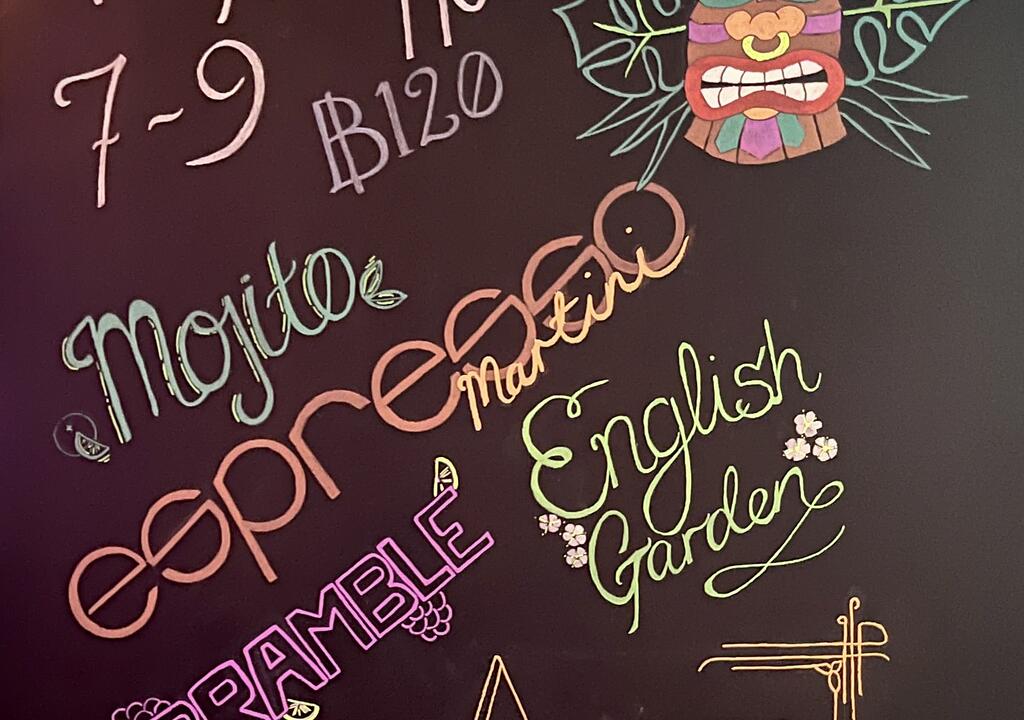 7~9
฿120
Mojito
espresso
Martini
English
Garden
BRAMBLE